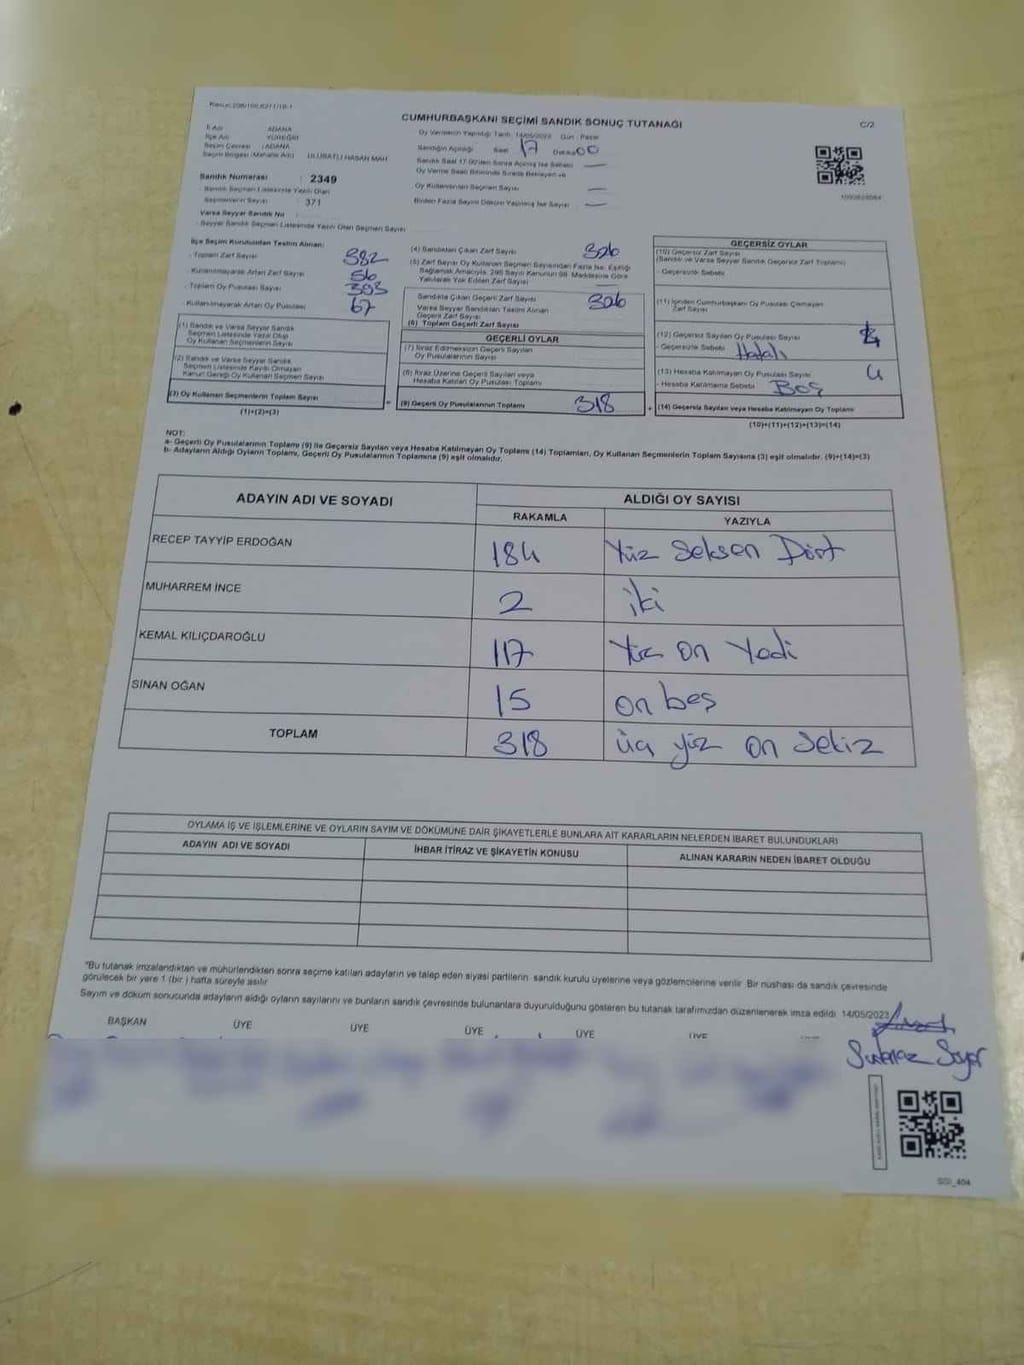 CUMHURBAŞKANI SEÇİMİ SANDIK SONUÇ TUTANAĞI
C/2
İl Adı : ADANA
İlçe Adı : YÜREĞİR
Seçim Çevresi : ADANA
Seçim Bölgesi (Mahalle Adı) : ULUBATLI HASAN MAH
Sandık Numarası : 2349
Sandık Seçmen Listesinde Yazılı Olan
Seçmenlerin Sayısı : 371
Varsa Seyyar Sandık No
Seyyar Sandık Seçmen Listesinde Yazılı Olan Seçmen Sayısı
Oy Vermenin Yapıldığı Tarih 14/05/2023 Gün : Pazar
Sandığın Açıldığı Saat 17 Dakika 00
Oy Kullandırılan Seçmen Sayısı —
Birden Fazla Sayım Döküm Yapılmış İse Sayısı —
İlçe Seçim Kurulundan Teslim Alınan:
- Toplam Zarf Sayısı 382
- Kullanılmayarak Artan Zarf Sayısı 56
- Toplam Oy Pusulası Sayısı 393
- Kullanılmayarak Artan Oy Pusulası 67
(1) Sandık ve Varsa Seyyar Sandık
Seçmen Listesinde Yazılı Olup
Oy Kullanan Seçmenlerin Sayısı
(2) Sandık ve Varsa Seyyar Sandık
Seçmen Listesinde Kayıtlı Olmayan
Kanun Gereği Oy Kullanan Seçmen Sayısı
(3) Oy Kullanan Seçmenlerin Toplam Sayısı
(1)+(2)=(3)
(4) Sandıktan Çıkan Zarf Sayısı 326
(5) Zarf Sayısı Oy Kullanan Seçmen Sayısından Fazla İse, Eşitliği
Sağlamak Amacıyla, 298 Sayılı Kanunun 98. Maddesine Göre
Yakılarak Yok Edilen Zarf Sayısı —
Sandıkta Çıkan Geçerli Zarf Sayısı 326
Varsa Seyyar Sandıktan Teslim Alınan
Geçerli Zarf Sayısı
(6) Toplam Geçerli Zarf Sayısı
GEÇERLİ OYLAR
(7) İtiraz Edilmeksizin Geçerli Sayılan
Oy Pusulalarının Sayısı
(8) İtiraz Üzerine Geçerli Sayılan veya
Hesaba Katılan Oy Pusulası Toplamı
(9) Geçerli Oy Pusulalarının Toplamı 318
GEÇERSİZ OYLAR
(10) Geçersiz Zarf Sayısı
(Sandık ve Varsa Seyyar Sandık Geçersiz Zarf Toplamı)
- Geçersizlik Sebebi
(11) İçinden Cumhurbaşkanı Oy Pusulası Çıkmayan
Zarf Sayısı
(12) Geçersiz Sayılan Oy Pusulası Sayısı 4
- Geçersizlik Sebebi Hatalı
(13) Hesaba Katılmayan Oy Pusulası Sayısı 4
- Hesaba Katılmama Sebebi Boş
(14) Geçersiz Sayılan veya Hesaba Katılmayan Oy Toplamı
(10)+(11)+(12)+(13)=(14)
NOT:
a- Geçerli Oy Pusulalarının Toplamı (9) ile Geçersiz Sayılan veya Hesaba Katılmayan Oy Toplamı (14) Toplamları, Oy Kullanan Seçmenlerin Toplam Sayısına (3) eşit olmalıdır. (9)+(14)=(3)
b- Adayların Aldığı Oyların Toplamı, Geçerli Oy Pusulalarının Toplamına (9) eşit olmalıdır.
ADAYIN ADI VE SOYADI ALDIĞI OY SAYISI
RAKAMLA YAZIYLA
RECEP TAYYİP ERDOĞAN 184 Yüz Seksen Dört
MUHARREM İNCE 2 iki
KEMAL KILIÇDAROĞLU 117 Yüz on Yedi
SİNAN OĞAN 15 on beş
TOPLAM 318 üç yüz on sekiz
OYLAMA İŞ VE İŞLEMLERİNE VE OYLARIN SAYIM VE DÖKÜMÜNE DAİR ŞİKAYETLERLE BUNLARA AİT KARARLARIN NELERDEN İBARET BULUNDUKLARI
ADAYIN ADI VE SOYADI İHBAR İTİRAZ VE ŞİKAYETİN KONUSU ALINAN KARARIN NEDEN İBARET OLDUĞU
"Bu tutanak imzalandıktan ve mühürlendikten sonra seçime katılan adayların ve talep eden siyasi partilerin sandık kurulu üyelerine veya gözlemcilerine verilir. Bir nüshası da sandık çevresinde
görülecek bir yere 1 (bir) hafta süreyle asılır.
Sayım ve döküm sonucunda adayların aldığı oyların sayılarını ve bunların sandık çevresinde bulunanlara duyurulduğunu gösteren bu tutanak tarafımızdan düzenlenerek imza edildi. 14/05/2023
BAŞKAN ÜYE ÜYE ÜYE ÜYE ÜYE